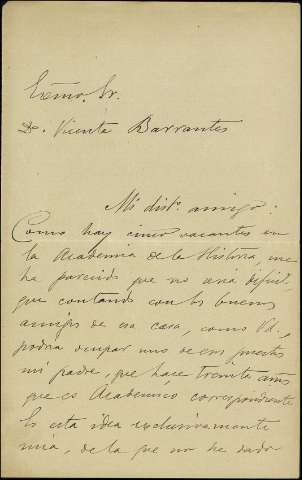 Exmo. Sr.
D. Vicente Barrantes
Mi dist.º amigo:
Como hay cinco vacantes en
la Academia de la Historia, me
ha parecido que no será difícil
que contando con los buenos
amigos de esa casa, como Vd.,
podría ocupar uno de esos puestos
mi padre, que hace treinta años
que es Académico correspondiente
Es esta idea exclusivamente
mia, de la que no he dado